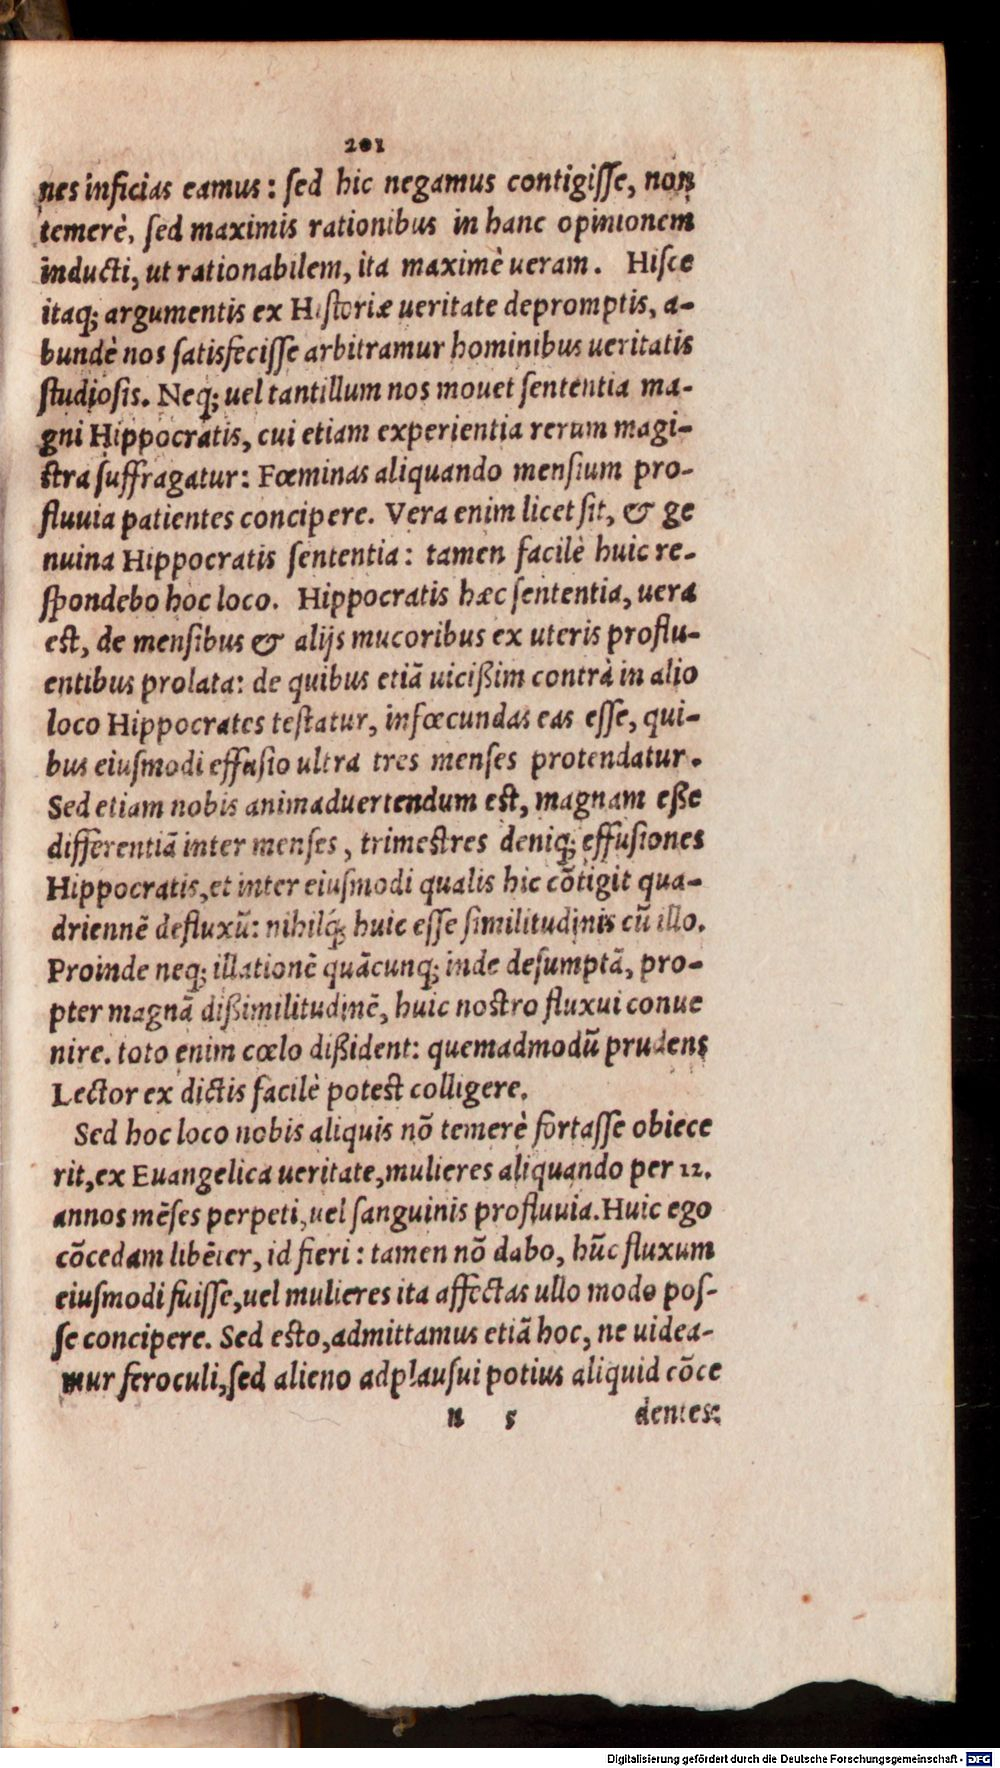 201
nes inficias eamus : ſed hic negamus contigiſſe, non
temerè, ſed maximis rationibus in hanc opinionem
inducti, ut rationabilem, ita maximè ueram. Hiſce
itaq; argumentis ex Hiſtoriæ ueritate depromptis, a-
bundè nos ſatisfeciſſe arbitramur hominibus ueritatis
ſtudioſis. Neq; uel tantillum nos mouet ſententia ma-
gni Hippocratis, cui etiam experientia rerum magi-
ſtra ſuffragatur: Fœminas aliquando menſium pro-
fluuia patientes concipere. Vera enim licet ſit, & ge
nuina Hippocratis ſententia : tamen facilè huic re-
ſpondebo hoc loco. Hippocratis hæc ſententia, uera
eſt, de menſibus & alijs mucoribus ex uteris proflu-
entibus prolata: de quibus etiã uicißim contrà in alio
loco Hippocrates teſtatur, infœcundas eas eſſe, qui-
bus eiuſmodi effuſio ultra tres menſes protendatur.
Sed etiam nobis animaduertendum eſt, magnam eße
differentiã inter menſes , trimeſtres deniq; effuſiones
Hippocratis,et inter eiuſmodi qualis hic cõtigit qua-
driennẽ defluxũ: nihilq́; huic eſſe ſimilitudinis cũ illo.
Proinde neq; illationẽ quãcunq; inde deſumptã, pro-
pter magnã dißimilitudinẽ, huic noſtro fluxui conue
nire. toto enim cœlo dißident: quemadmodũ prudens
Lector ex dictis facilè poteſt colligere.
Sed hoc loco nobis aliquis nõ temerè fortaſſe obiece
rit,ex Euangelica ueritate,mulieres aliquando per 12.
annos mẽſes perpeti,uel ſanguinis profluuia.Huic ego
cõcedam libẽter, id fieri : tamen nõ dabo, hũc fluxum
eiuſmodi fuiſſe,uel mulieres ita affectas ullo modo poſ-
ſe concipere. Sed eſto,admittamus etiã hoc, ne uidea-
mur feroculi,ſed alieno adplauſui potius aliquid cõce
n 5 dentes:
Digitalisierung gefördert durch die Deutsche Forschungsgemeinschaft - DFG